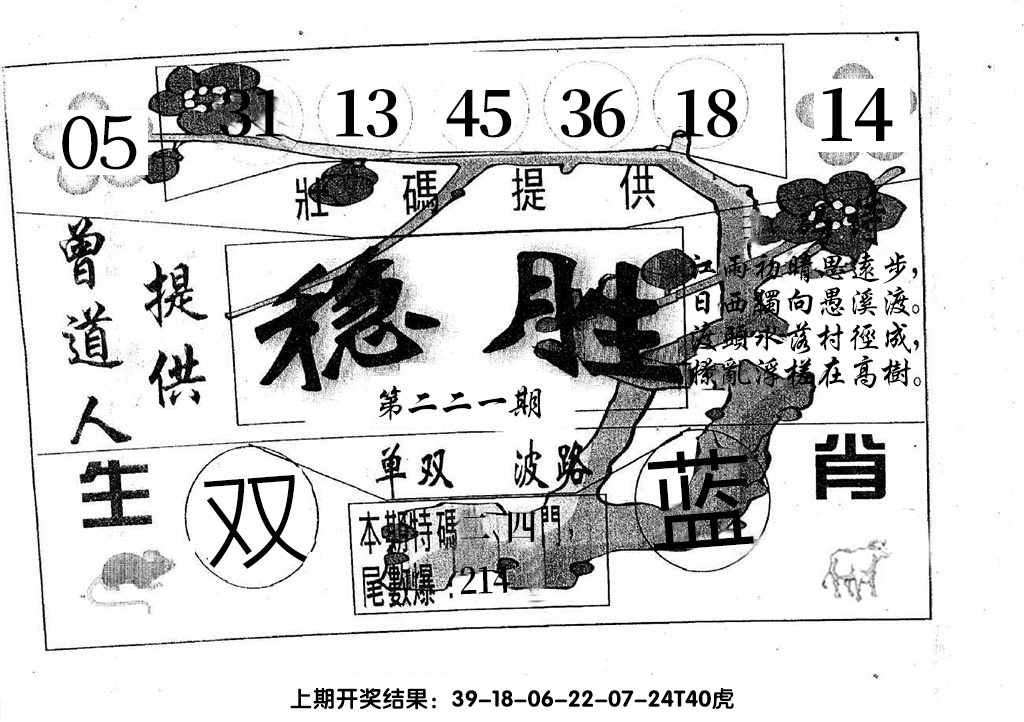 05 31 13 45 36 18 14
壯碼提供
曾道人
提供
稳胜
第二二一期
江雨初晴思遠步，
日西獨向愚溪渡。
渡頭水落村徑成，
撩亂浮槎在高樹。
单双 波路
生肖
双
蓝
本期特碼二、四門，
尾數爆：214
上期开奖结果：39-18-06-22-07-24T40虎